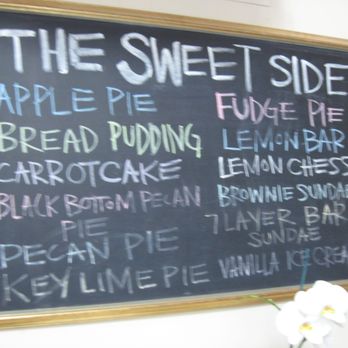 THE SWEET SIDE
APPLE PIE
BREAD PUDDING
CARROTCAKE
BLACK BOTTOM PECAN
PIE
PECAN PIE
KEY LIME PIE
FUDGE PIE
LEMON BAR
LEMON CHESS
BROWNIE SUNDAE
7 LAYER BAR
SUNDAE
VANILLA ICE CREA